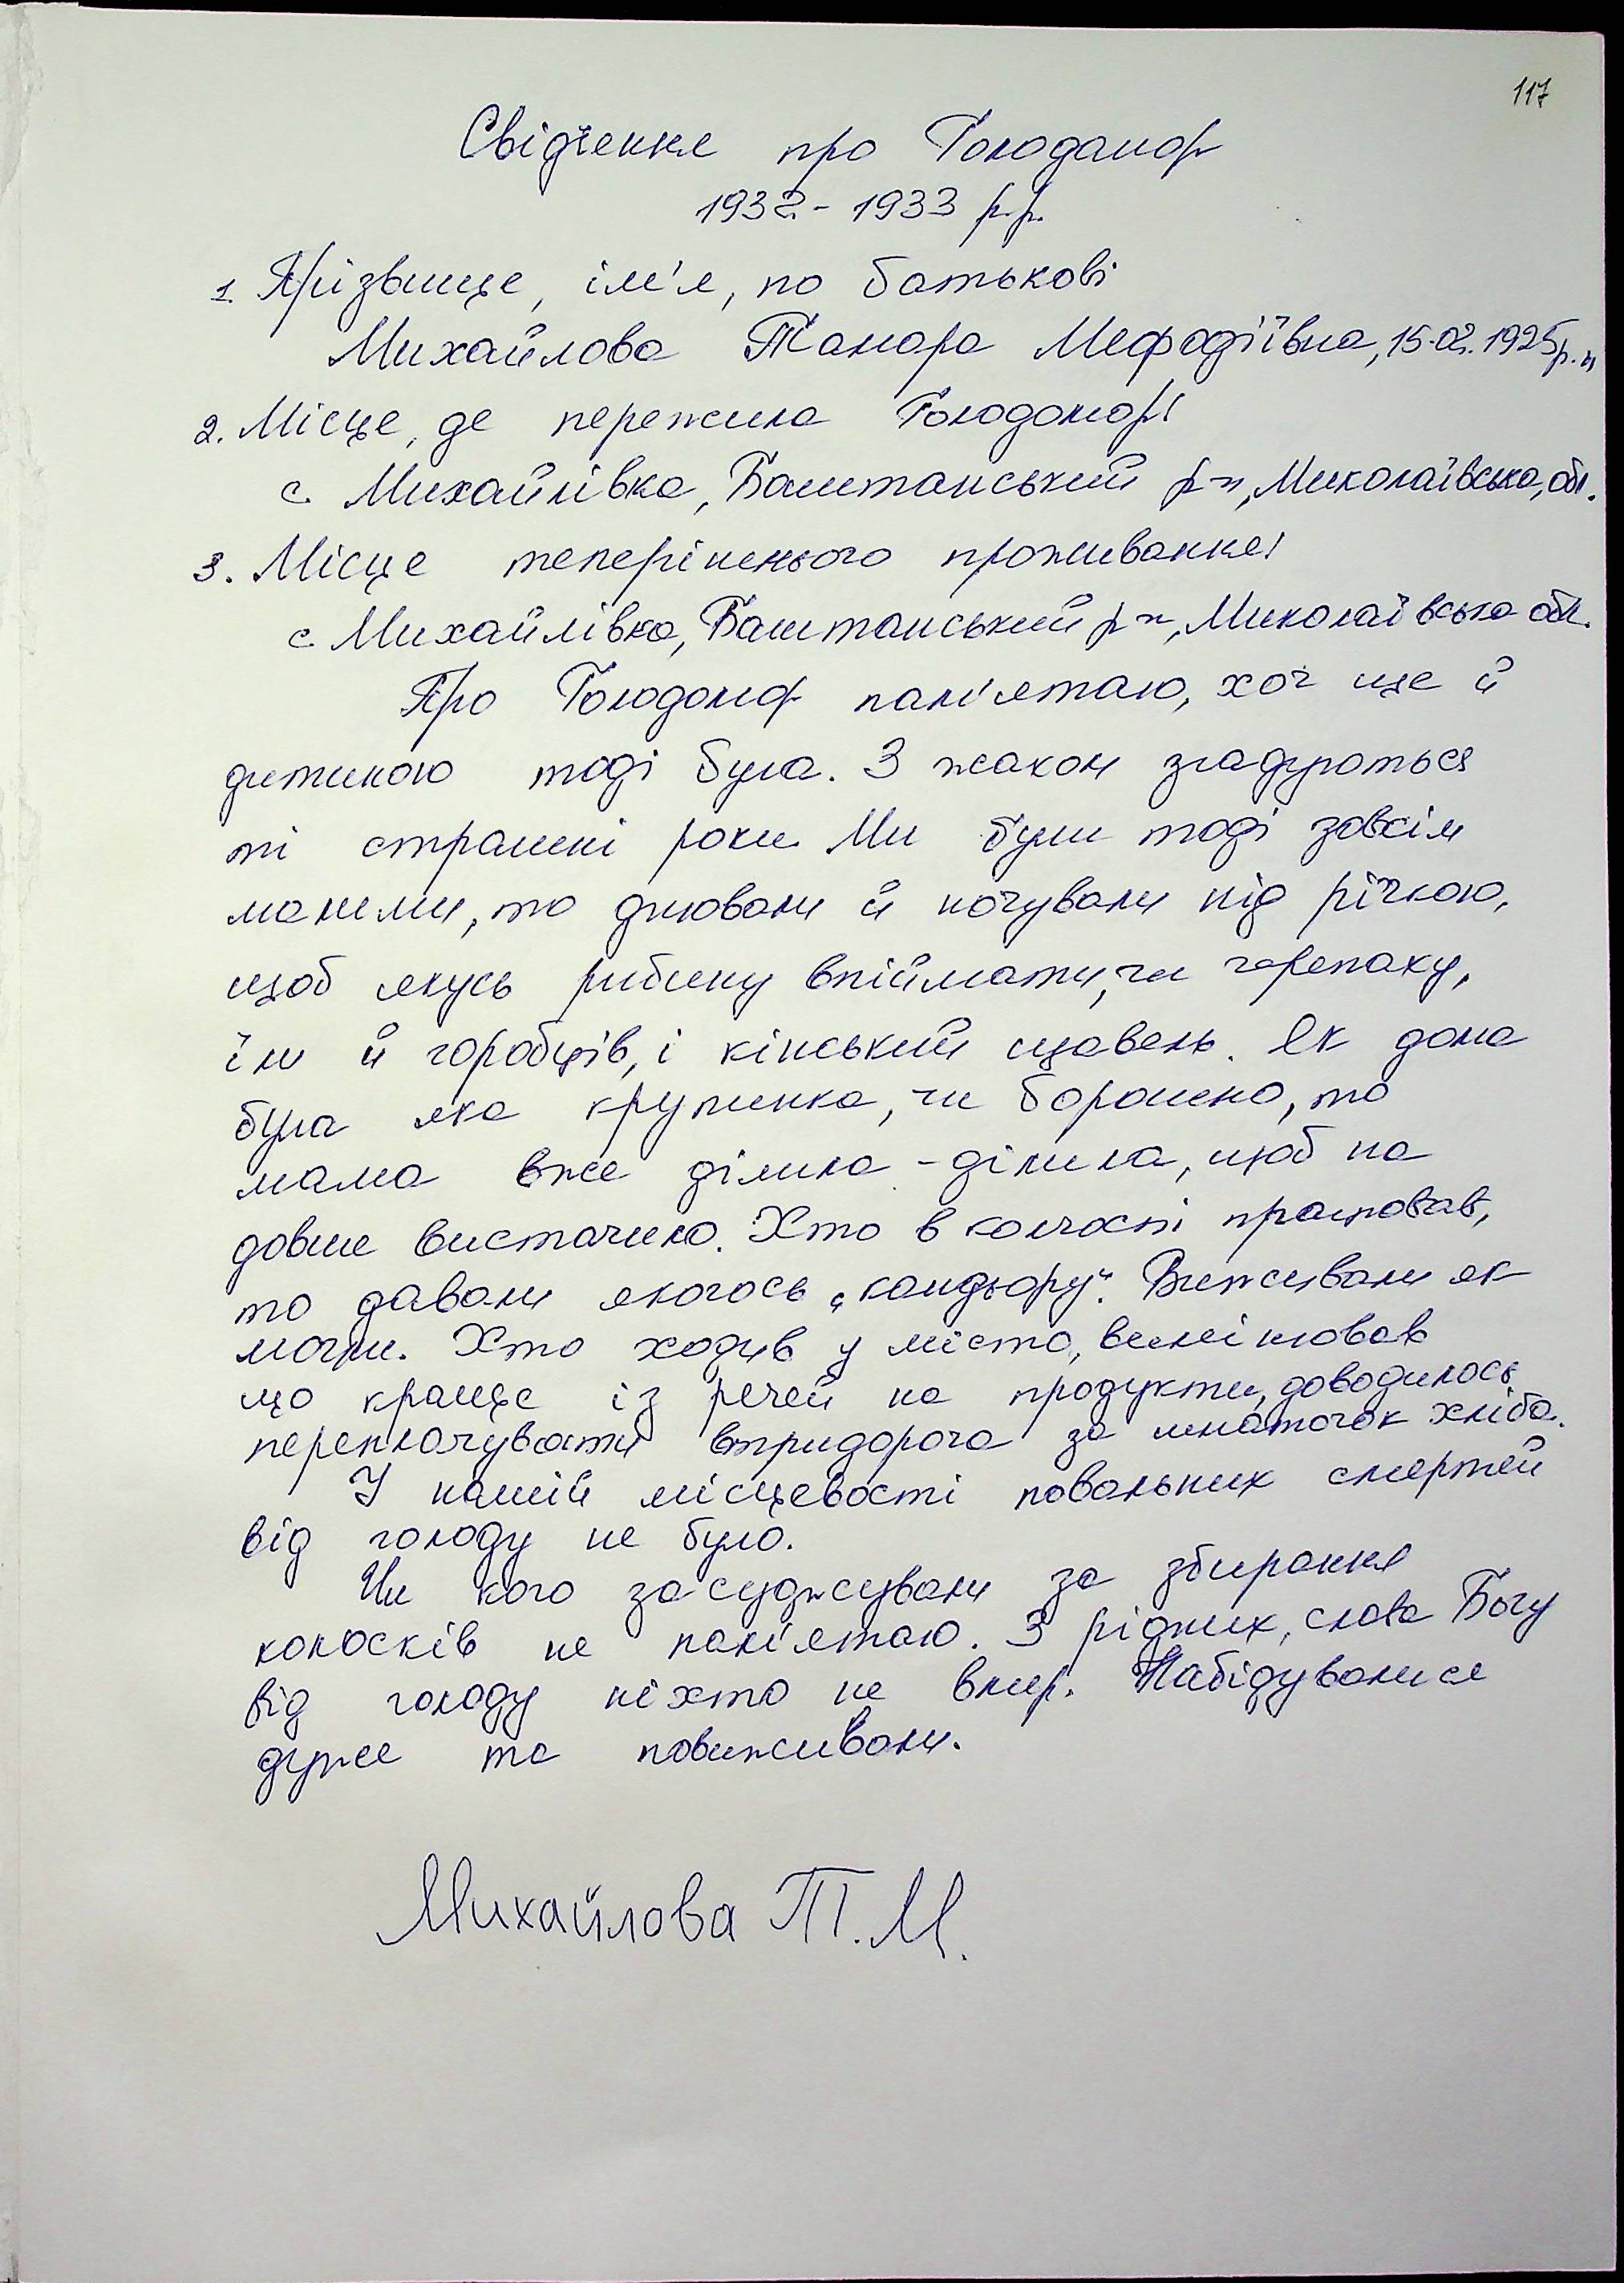 117
Свідчення про Голодомор
1932 - 1933 р.р.
1. Прізвище, ім'я, по батькові
Михайлова Тамара Мефодіївна, 15.02.1925р.н
2. Місце, де пережила Голодомор:
с. Михайлівка, Баштанський р-н, Миколаївська, обл.
3. Місце теперішнього проживання:
с. Михайлівка, Баштанський р-н, Миколаївська обл.
Про Голодомор пам'ятаю, хоч ще й
дитиною тоді була. З жахом згадуються
ті страшні роки. Ми були тоді зовсім
малими, то днювали й ночували під річкою,
щоб якусь рибину впіймати, чи черепаху,
їли й горобців, і кінський щавель. Як дома
була яка крупинка, чи борошно, то
мама вже ділила - ділила, щоб на
довше вистачило. Хто в колгоспі працював,
то давали якогось „кандьору". Виживали як
могли. Хто ходив у місто, вимінював
що краще із речей на продукти, доводилось
переплачувати втридорога за шматочок хліба.
У нашій місцевості повальних смертей
від голоду не було.
Чи кого засуджували за збирання
колосків не пам'ятаю. З рідних, слава Богу
від голоду ніхто не вмер. Набідувалися
дуже та повиживали.
Михайлова Т.М.